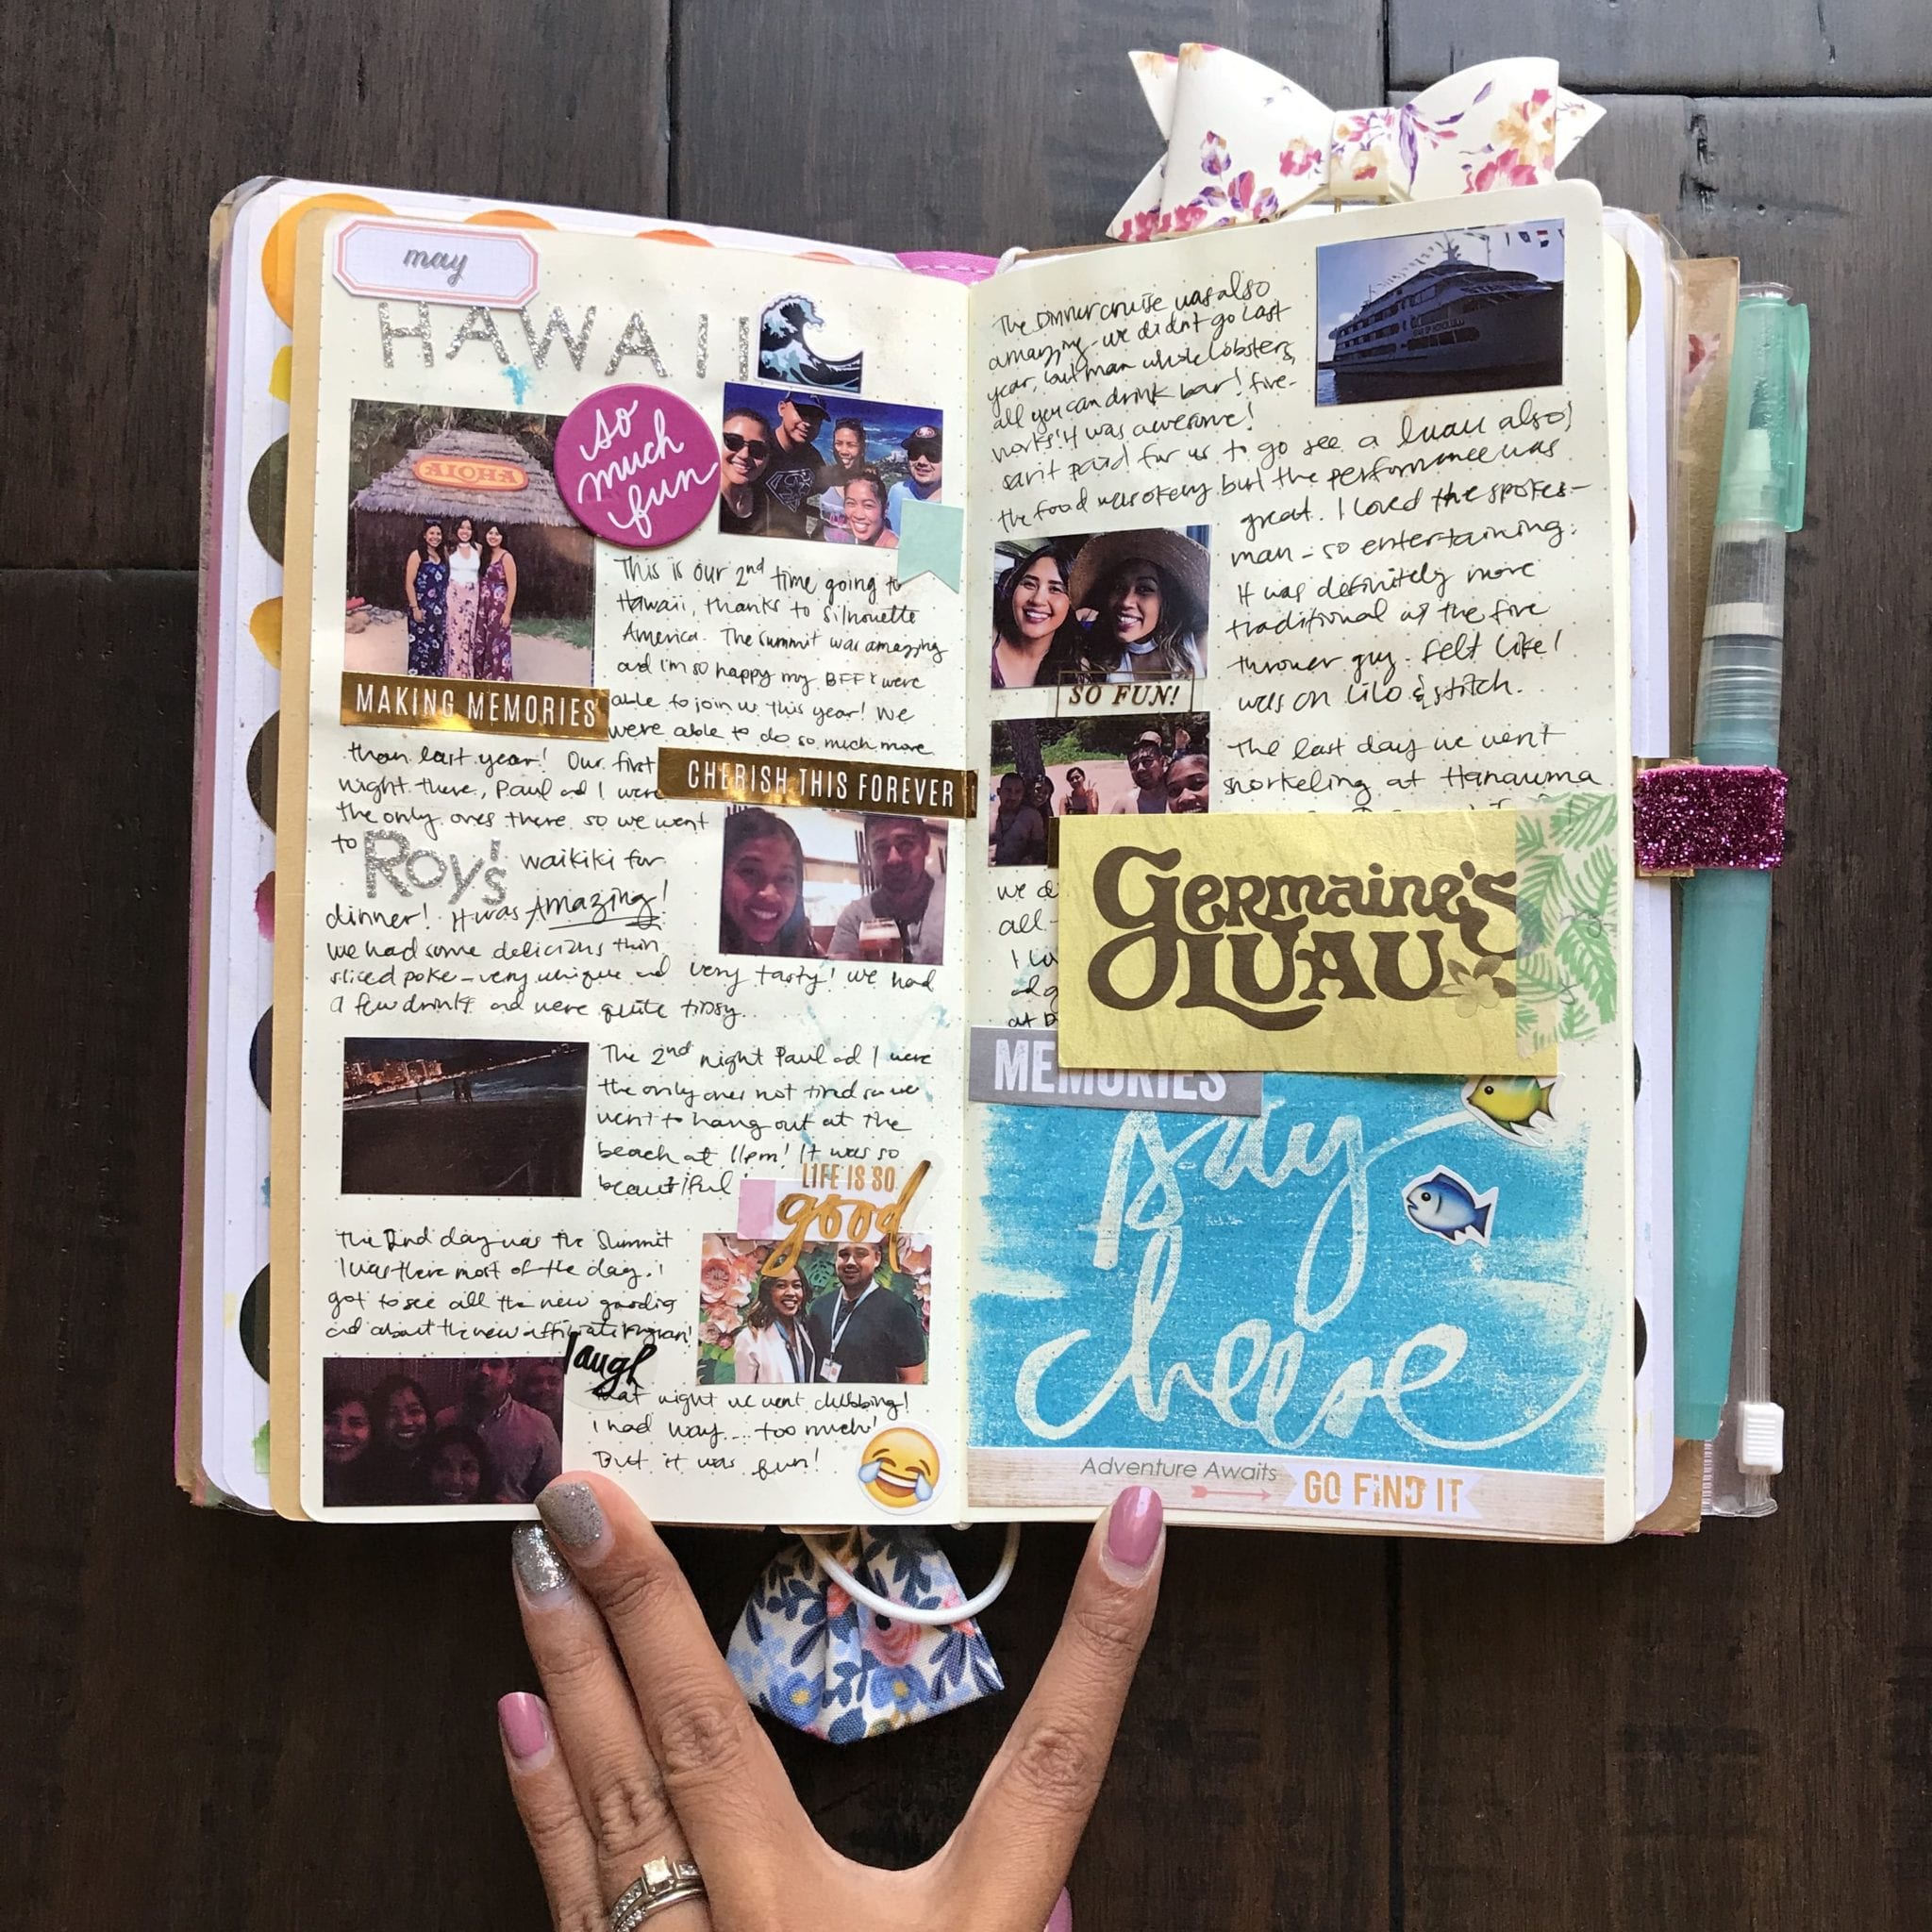 may
HAWAII
ALOHA
so
much
fun
This is our 2nd time going to
Hawaii, thanks to Silhouette
America. The summit was amazing
and i'm so happy my BFFs were
able to join us this year! We
were able to do so much more
MAKING MEMORIES
than last year! Our first
night there, Paul ad I were
the only ones there so we went
to Roy's waikiki for
dinner! It was Amazing!
we had some delicious thin
sliced poke - very unique ad very tasty! we had
a few drinks and were quite tipsy.
CHERISH THIS FOREVER
The 2nd night Paul ad I were
the only ones not tired so we
went to hang out at the
beach at 11pm! It was so
beautiful
LIFE IS SO
good
The 2nd day was the Summit
I was there most of the day. I
got to see all the new goodies
and about the new affiliate program!
laugh
that night we went clubbing!
i had way.... too much!
But it was fun!
The Dinner cruise was also
amazing - we didn't go last
year, but man whole lobsters,
all you can drink bar! fire-
works! It was awesome!
paid for us to go see a luau also!
the food was okay but the performance was
great. I loved the spokes-
man - so entertaining.
It was definitely more
traditional as the fire
thrower guy. Felt like I
was on Lilo & Stitch.
SO FUN!
The last day we went
snorkeling at Hanauma
we
all
I
at
Germaine's
LUAU
MEMORIES
say
cheese
Adventure Awaits
GO FIND IT